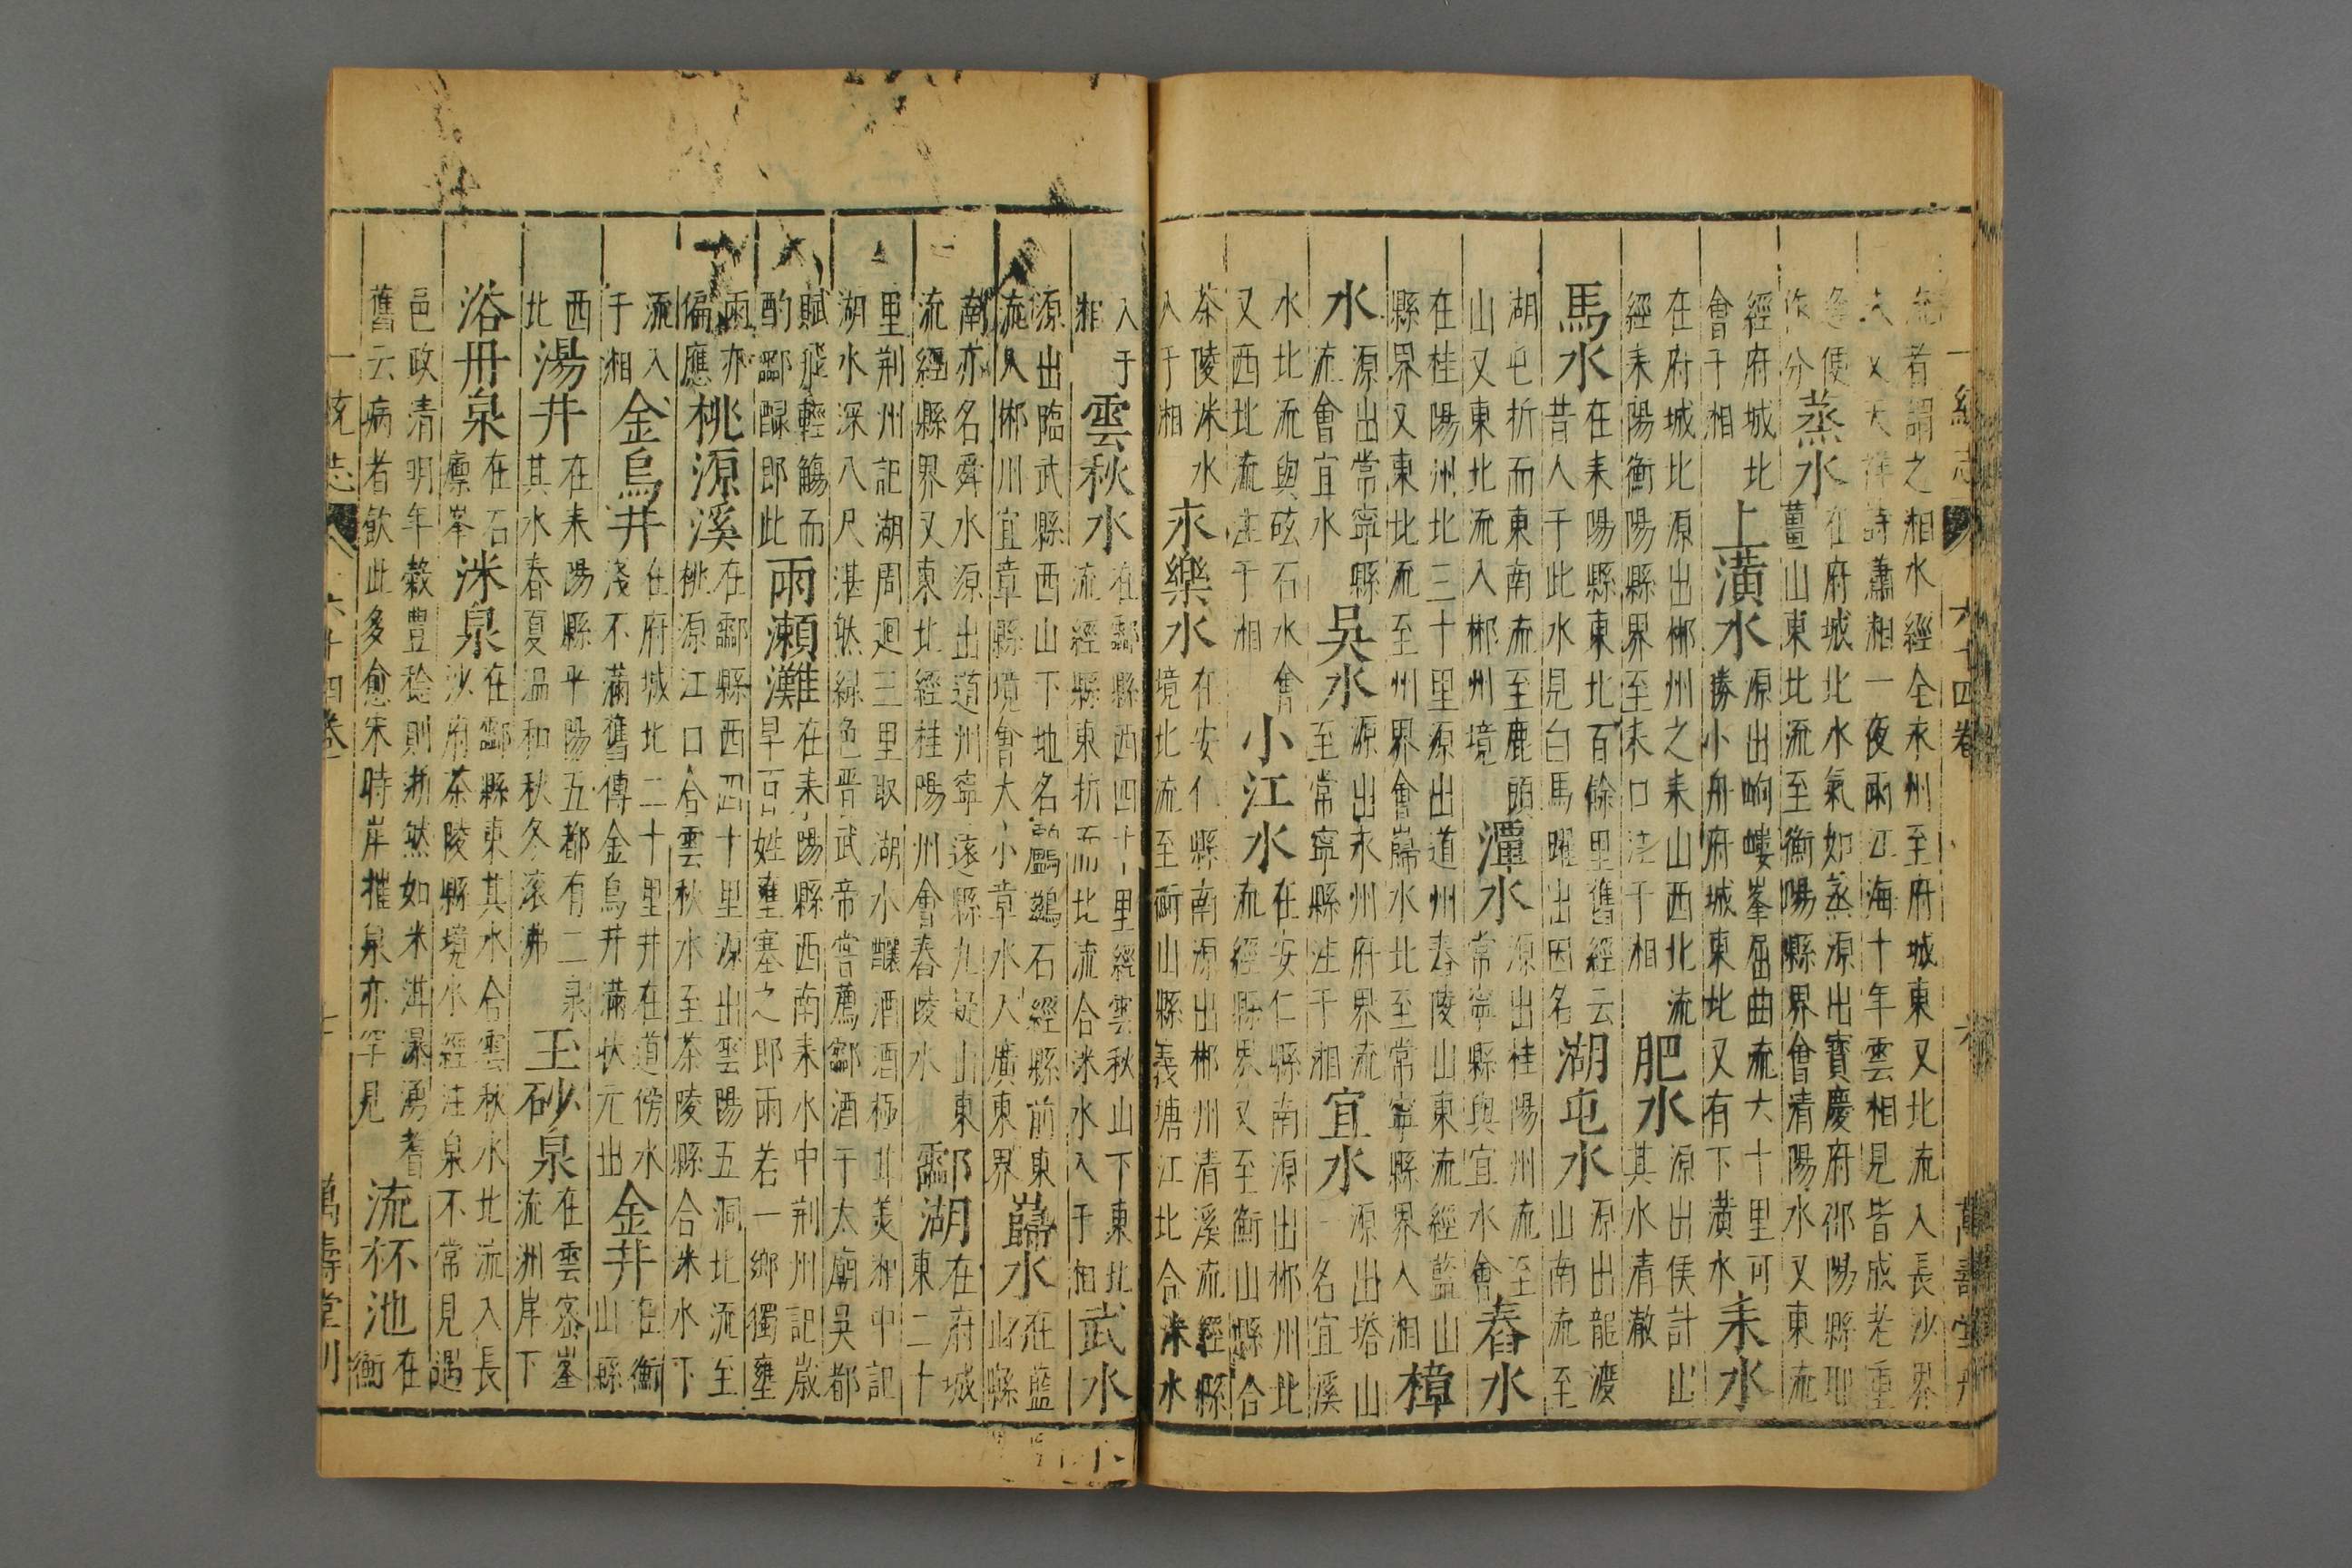 一統志 六十四卷 六 萬壽堂刊
流者謂之相水經全永州至府城東又北流入長沙界
宋文天祥詩蕭相一夜雨江海十年雲相見皆成老重
逢便作分 蒸水 在府城北水氣如蒸源出寶慶府邵陽縣耶薑山東北流至衡陽縣界會清陽水又東流
經府城北會于相 上潢水 源出岣嶁峯屈曲流大十里可勝小舟府城東北又有下潢水 耒水
在府城北源出郴州之耒山西北流經耒陽衡陽縣界至耒口注于相 肥水 源出侯計山其水清澈
馬水 在耒陽縣東北百餘里舊經云昔人于此水見白馬躍出因名 湖屯水 源出龍渡山南流至
湖屯折而東南流至鹿頭山又東北流入郴州境 潭水 源出桂陽州流至常寧縣與宜水會 舂水
在桂陽州北三十里源出道州舂陵山東流經藍山縣界又東北流至州界會巋水北至常寧縣界入湘 樟
水 源出常寧縣流會宜水 吳水 源出永州府界流至常寧縣注于湘 宜水 源出塔山一名宜溪
水北流與砅石水會又西北流注于湘 小江水 在安仁縣南源出郴州北流經縣界又至衡山縣合
茶陵洣水入于湘 永樂水 在安仁縣南源出郴州清溪流經縣境北流至衡山縣義塘江北合洣水
入于湘 雲秋水 在酃縣西四十里經雲秋山下東北流經縣東折而北流合洣水入于相 武水
源出臨武縣西山下地名鸕鷀石經縣前東流入郴州宜章縣境會大小章水入廣東界 巋水 在藍山縣
南亦名舜水源出道州寧遠縣九疑山東流經縣界又東北經桂陽州會舂陵水 酃湖 在府城東二十
里荆州記湖周迴三里取湖水釀酒酒極甘美湘中記湖水深八尺湛然綠色晋武帝嘗薦酃酒于太廟吳都
賦飛輕觴而酌酃醁即此 雨瀬灘 在耒陽縣西南耒水中荆州記歲旱百姓壅塞之即雨若一鄉獨壅
雨亦偏應 桃源溪 在酃縣西四十里源出雲陽五洞北流至桃源江口合雲秋水至茶陵縣合洣水下
流入于相 金烏井 在府城北二十里井在道傍水淺不滿舊傳金烏井滿狀元出 金井 在衡山縣
西北 湯井 在耒陽縣平陽五都有二泉其水春夏温和秋冬滾沸 玉砂泉 在雲密峯下流洲岸
浴丹泉 在石廪峯 洣泉 在酃縣東其水合雲秋水北流入長沙府茶陵縣境水經注泉不常見遇
邑政清明年穀豊稔則淅然如米泔瀑湧耆舊云病者飲此多愈宋時岸摧泉亦罕見 流杯池 在衡
一統志 六十四卷 七 萬壽堂刊